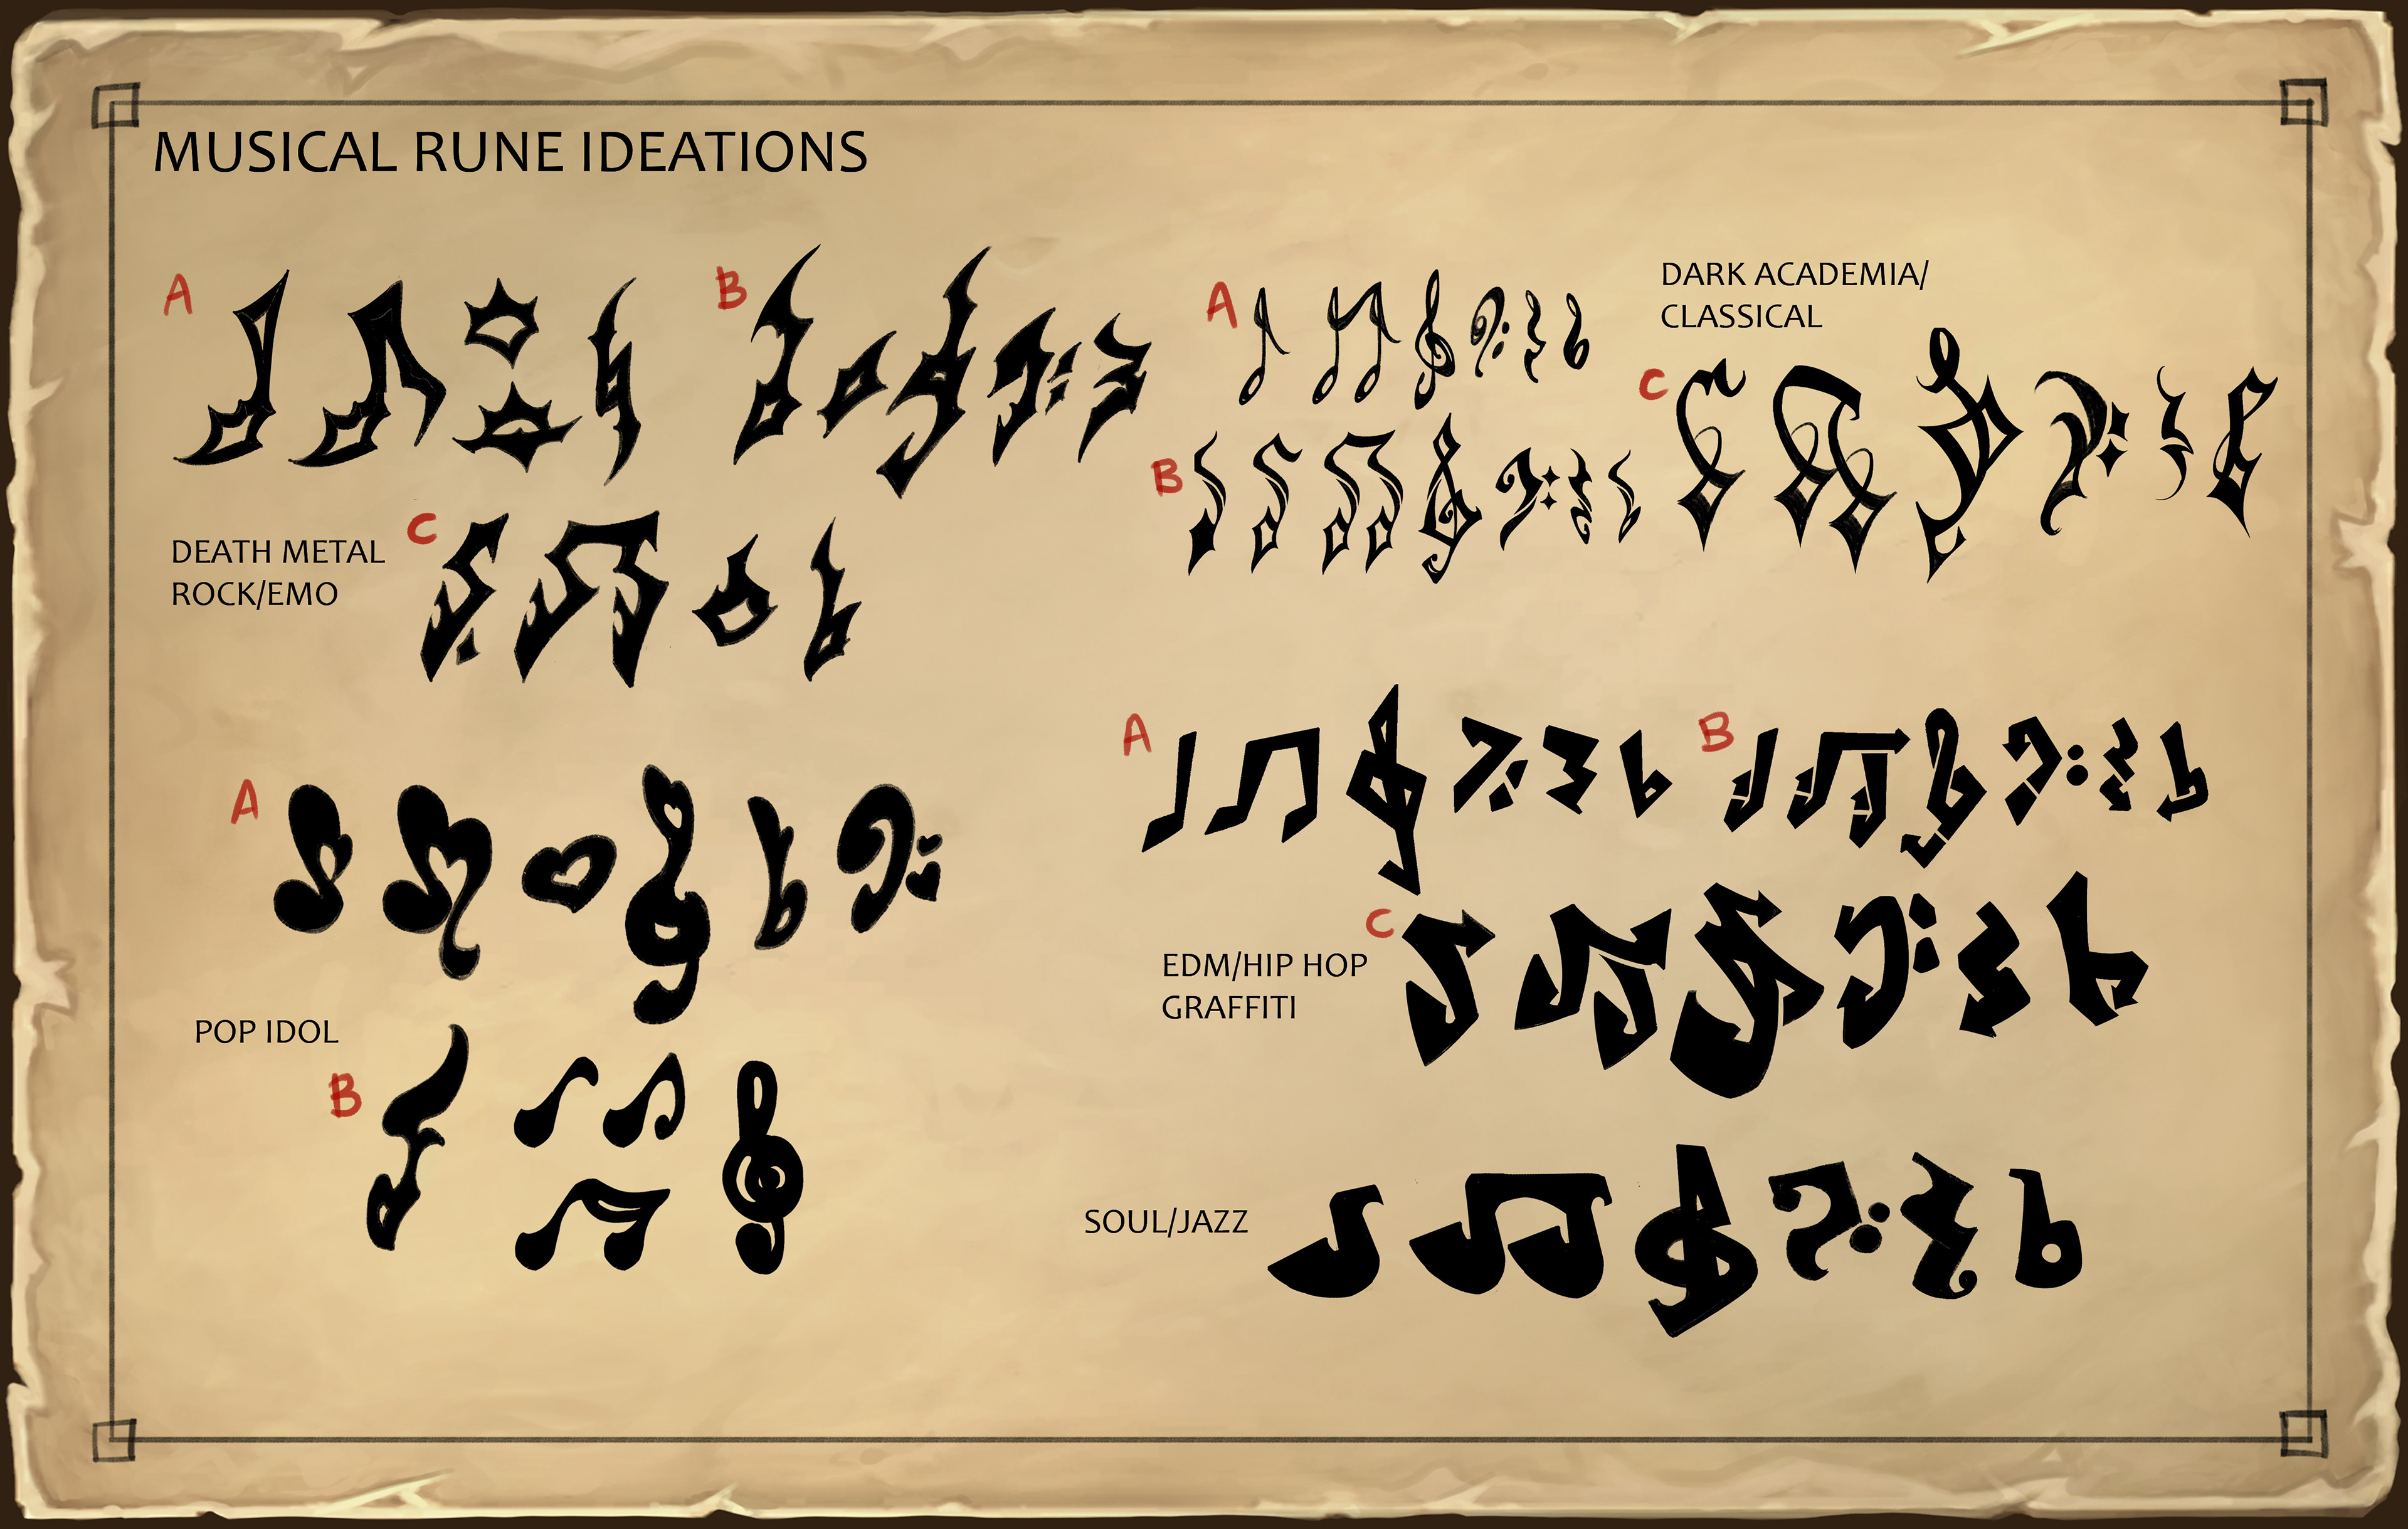 MUSICAL RUNE IDEATIONS
A
B
C
DEATH METAL
ROCK/EMO
A
DARK ACADEMIA/
CLASSICAL
B
C
A
POP IDOL
B
A
B
C
EDM/HIP HOP
GRAFFITI
SOUL/JAZZ